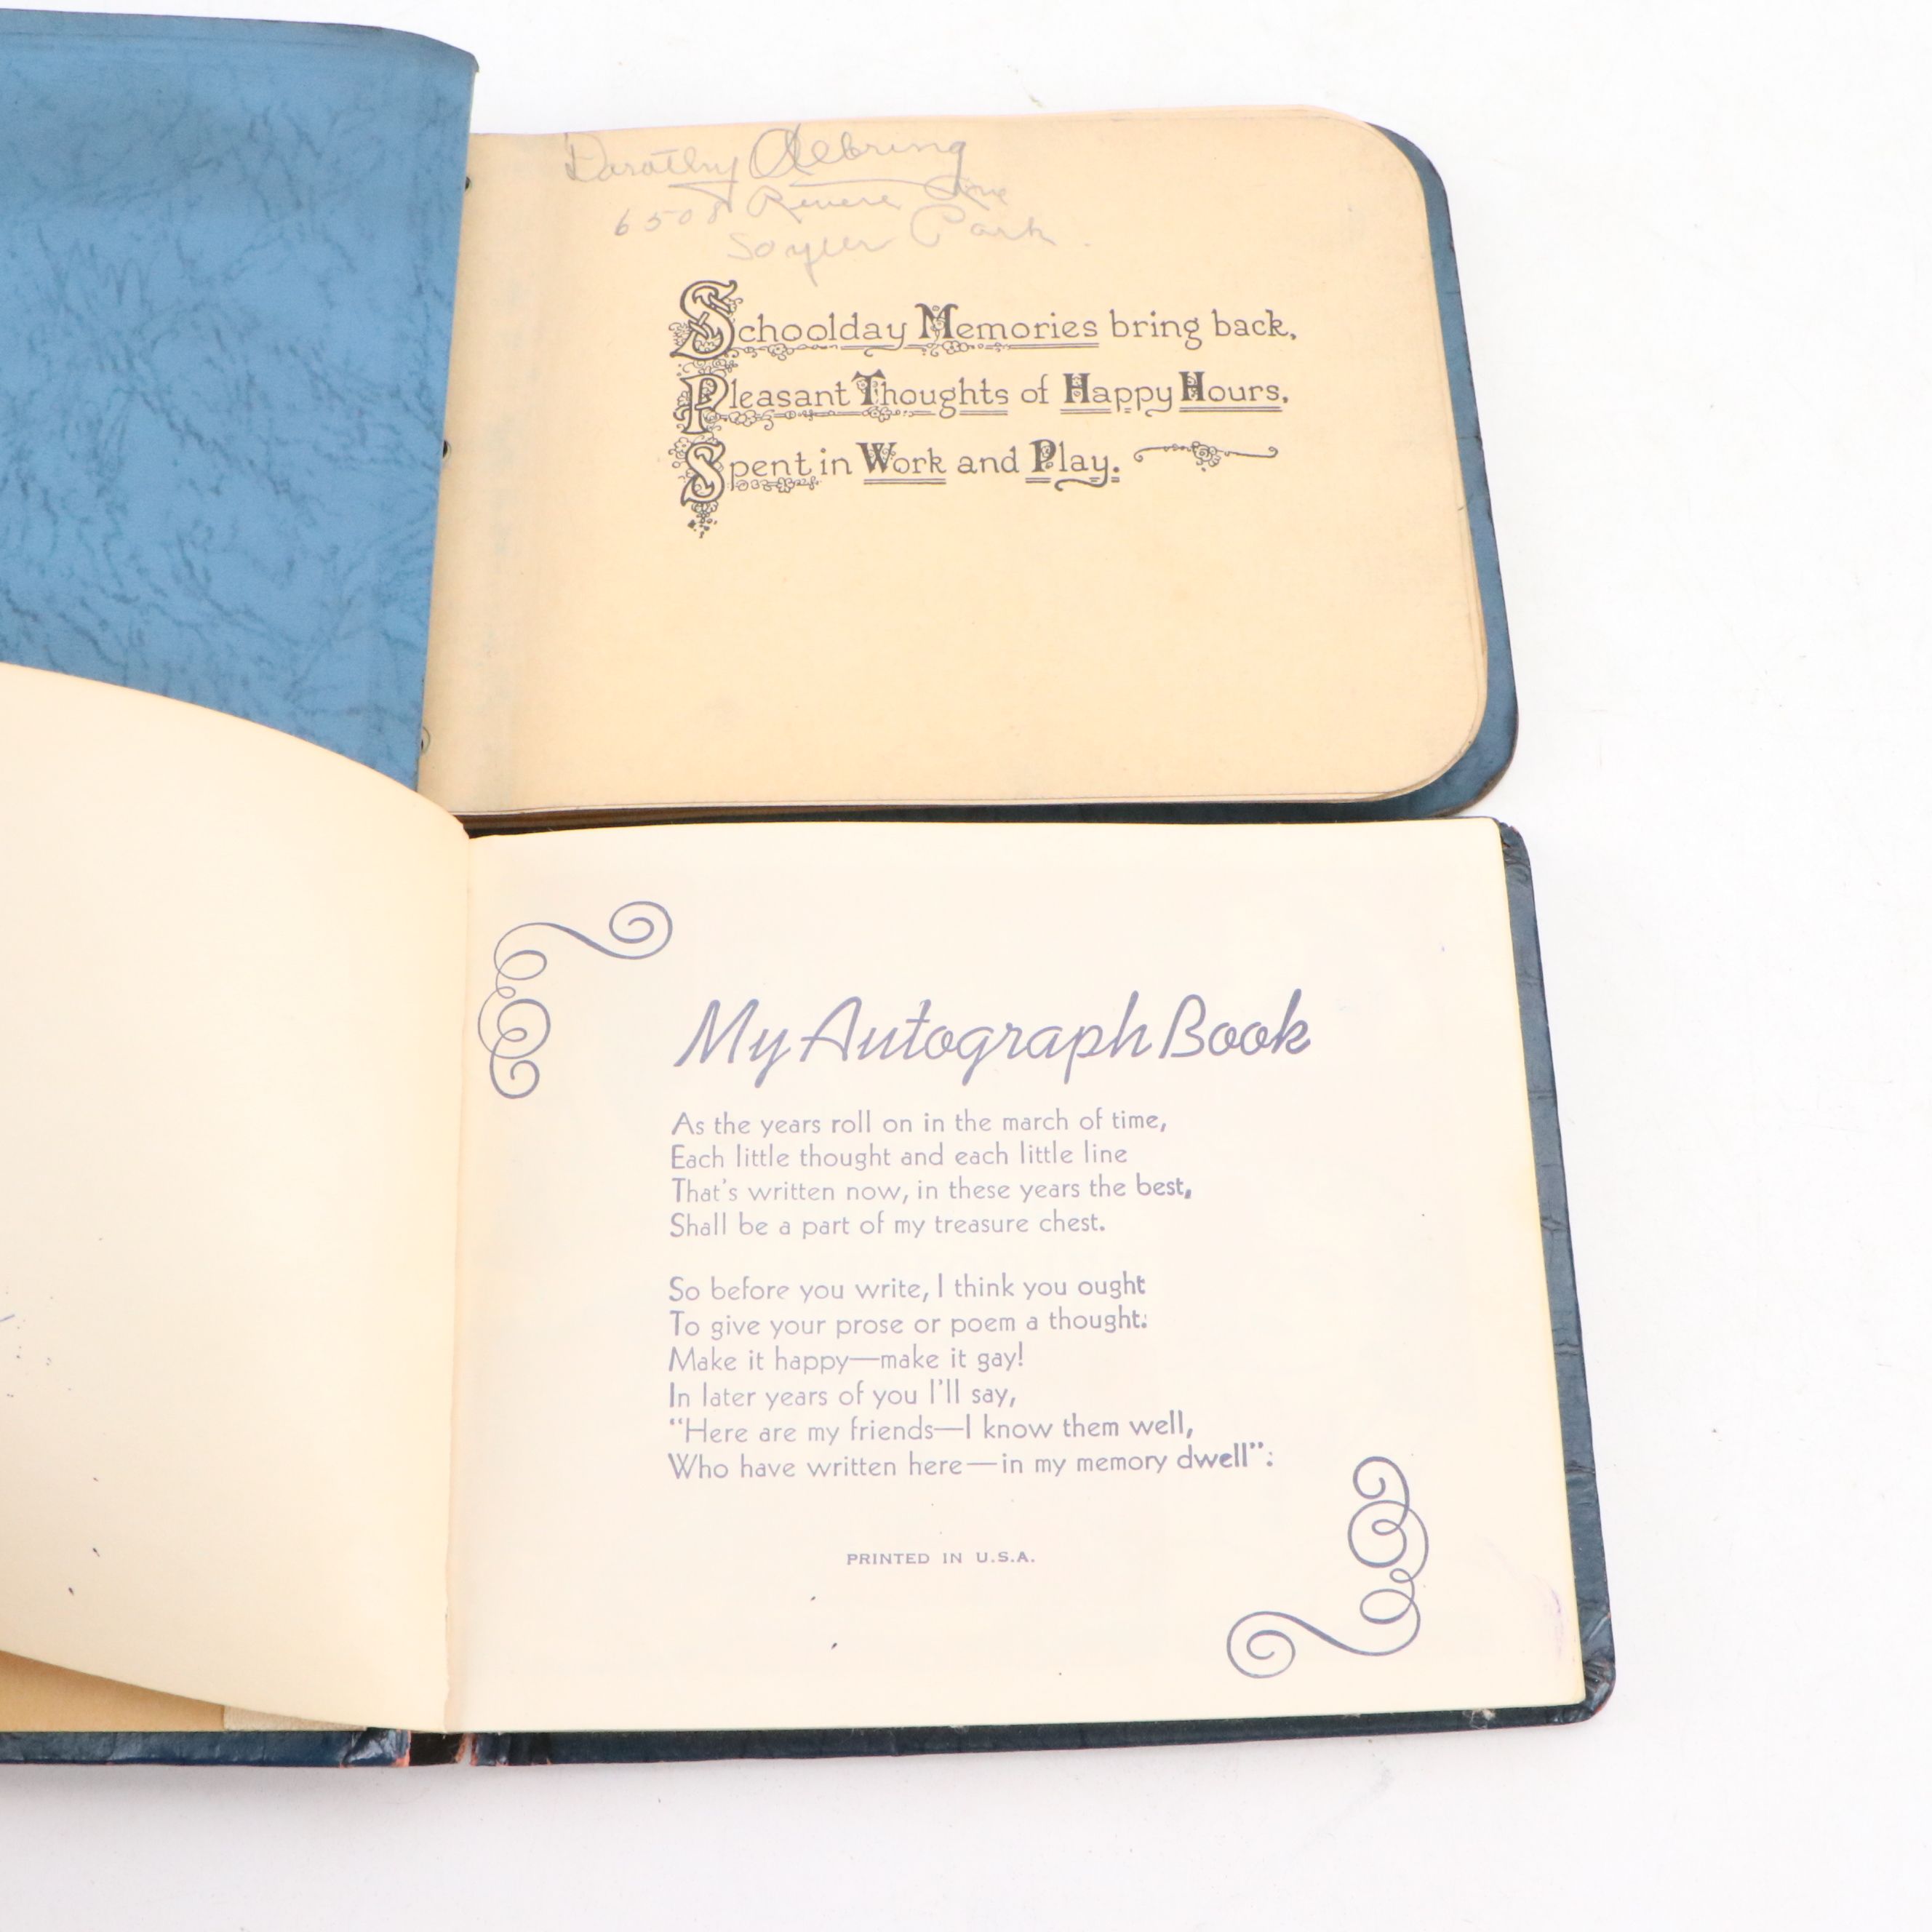 Dorothy
6508 Revere
Park
Schoolday Memories bring back,
Pleasant Thoughts of Happy Hours,
Spent in Work and Play.
My Autograph Book
As the years roll on in the march of time,
Each little thought and each little line
That's written now, in these years the best,
Shall be a part of my treasure chest.
So before you write, I think you ought
To give your prose or poem a thought:
Make it happy—make it gay!
In later years of you I'll say,
"Here are my friends—I know them well,
Who have written here—in my memory dwell":
PRINTED IN U.S.A.